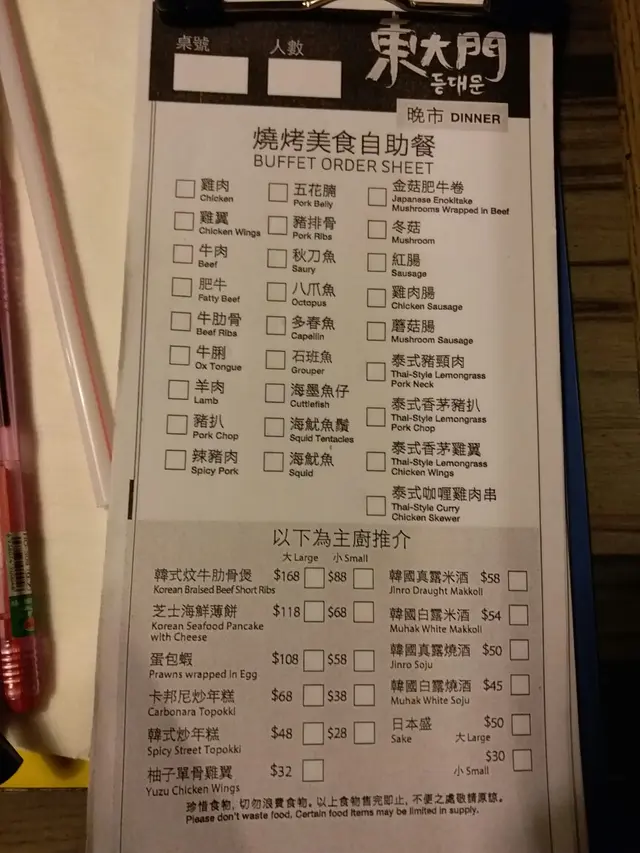 桌號
人數
東大門
동대문
晚市 DINNER
燒烤美食自助餐
BUFFET ORDER SHEET
雞肉
Chicken
雞翼
Chicken Wings
牛肉
Beef
肥牛
Fatty Beef
牛肋骨
Beef Ribs
牛脷
Ox Tongue
羊肉
Lamb
豬扒
Pork Chop
辣豬肉
Spicy Pork
五花腩
Pork Belly
豬排骨
Pork Ribs
秋刀魚
Saury
八爪魚
Octopus
多春魚
Capelin
石班魚
Grouper
海墨魚仔
Cuttlefish
海魷魚鬚
Squid Tentacles
海魷魚
Squid
金菇肥牛卷
Japanese Enokitake
Mushrooms Wrapped in Beef
冬菇
Mushroom
紅腸
Sausage
雞肉腸
Chicken Sausage
蘑菇腸
Mushroom Sausage
泰式豬頸肉
Thai-Style Lemongrass
Pork Neck
泰式香茅豬扒
Thai-Style Lemongrass
Pork Chop
泰式香茅雞翼
Thai-Style Lemongrass
Chicken Wings
泰式咖喱雞肉串
Thai-Style Curry
Chicken Skewer
以下為主廚推介
大 Large 小 Small
韓式炆牛肋骨煲 $168 $88
Korean Braised Beef Short Ribs
芝士海鮮薄餅 $118 $68
Korean Seafood Pancake
with Cheese
蛋包蝦 $108 $58
Prawns wrapped in Egg
卡邦尼炒年糕 $68 $38
Carbonara Topokki
韓式炒年糕 $48 $28
Spicy Street Topokki
柚子單骨雞翼 $32
Yuzu Chicken Wings
韓國真露米酒 $58
Jinro Draught Makkoli
韓國白露米酒 $54
Muhak White Makkoli
韓國真露燒酒 $50
Jinro Soju
韓國白露燒酒 $45
Muhak White Soju
日本盛 $50
Sake 大 Large
$30
小 Small
珍惜食物, 切勿浪費食物。以上食物售完即止, 不便之處敬請原諒。
Please don't waste food. Certain food items may be limited in supply.